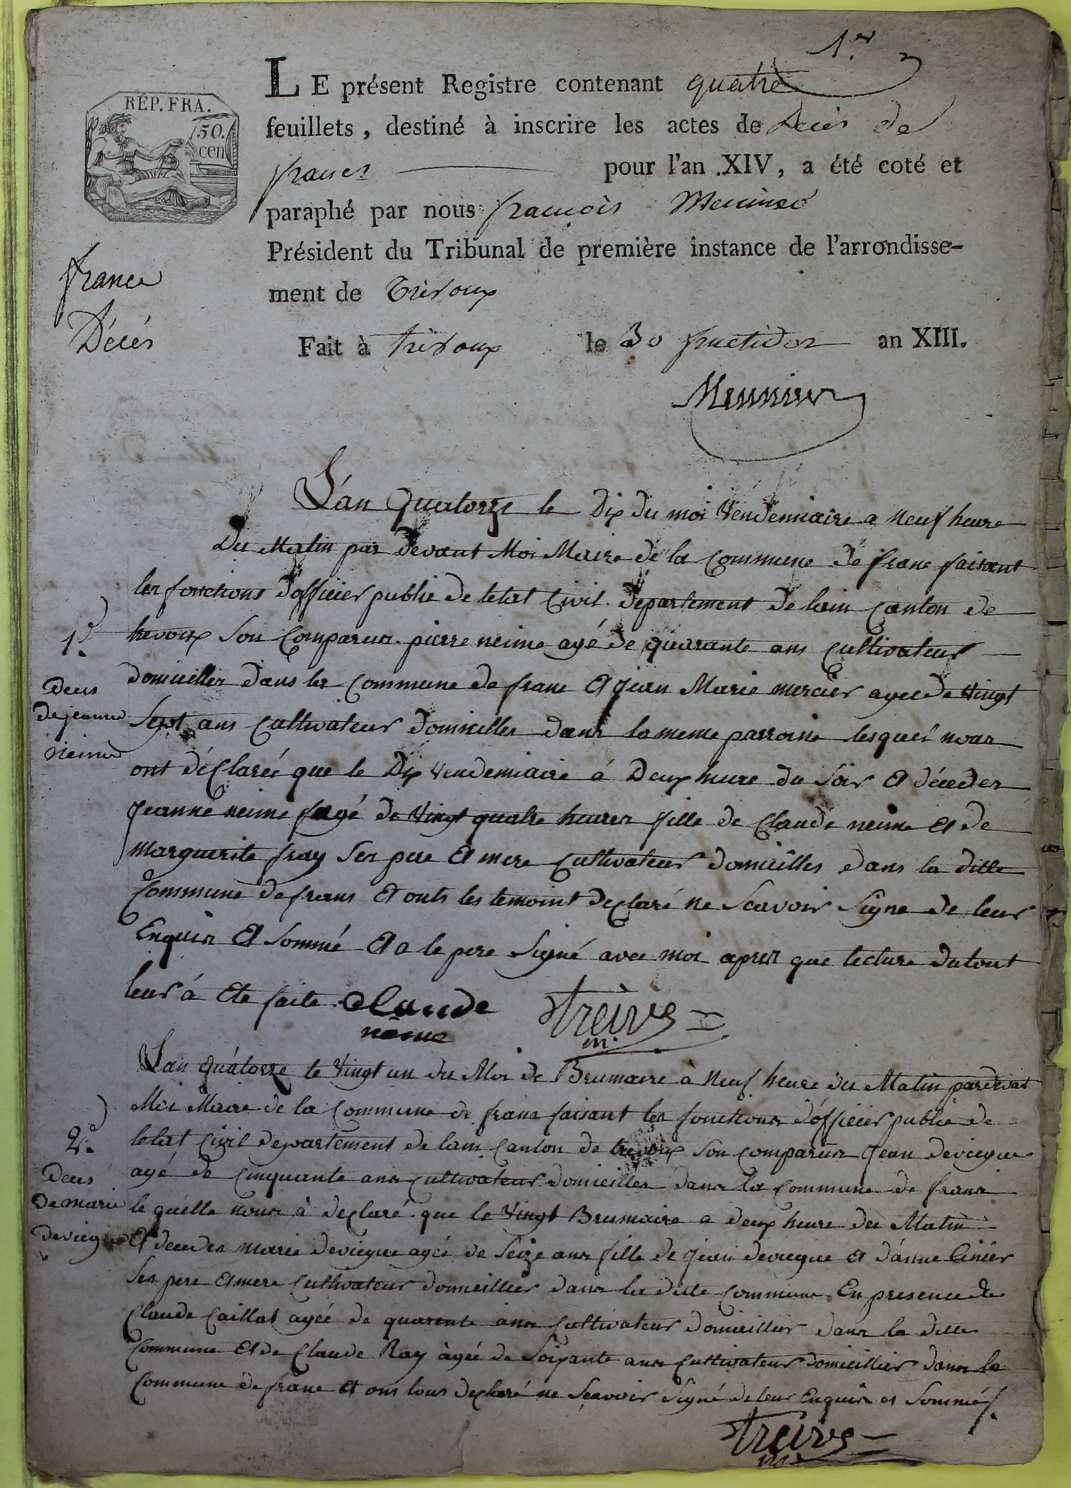 1.er
LE présent Registre contenant quatre
feuillets, destiné à inscrire les actes de Décés de
frans pour l'an XIV, a été coté et
paraphé par nous françois
Président du Tribunal de première instance de l'arrondisse-
ment de Trévoux
Fait à trévoux le 30 fructidor an XIII.
RÉP. FRA.
50.
cen
france
Décés
Meunier
L'an Quatorze le Dix du moi Vendemiaire a Neuf heure
Du Matin par devant Moi Maire de la Commune de franc faisant
les fonctions d'officier public de letat Civil departement de lain Canton de
trevoux Son Comparus pierre neime agé de quarante ans Cultivateur
domicillés dans la Commune de franc et jean Marie mercier ageé de Vingt
Sept ans Cultivateur domicilles dans la meme parroine lesquél nous
ont déClareé que le Dix Vendemiaire à Deux hure du Soir et déceder
jeanne neime agé de Vingt quatre heures fille de Claude neime et de
marguerite fray Ses pere et mere Cultivateur domicilles dans la ditte
Commune de frans et onts les temoint declaré ne Scavoir Signe de leur
Enquir et Sommé et a le pere Signé avec moi apres que lecture du tout
leur à ete faite
1.d
Deces
de jeanne
neime
Claude
neime
treive
m.
Lan quatorze le Vingt un du Moi de Brumaire à Neuf heure du Matin par devant
Moi Maire de la Commune de franc faisant les fonctions d'officier public de
letat Civil departement de lain Canton de trevoux Son Comparus jean devieque
agé de Cinquante ans Cultivateur domicilles dans la Commune de frans
le quélle nous à declaré que le Vingt Brumaire a deux heure du Matin
et deceder marie devieque ageé de Seize ans fille de jean devieque et d'anne
Ses pere et mere Cultivateur domicillier dans la dite Commune En presence de
Claude Caillat ageé de quarente ans Cultivateur domicillier dans la ditte
Commune et de Claude Ray àgeé de Soixante ans Cultivateur domicillier dans la
Commune de franc et ons tous declaré ne Scavoir Signé de leur Enquir et Sommés
2.d
Deces
de marie
devieque
treive